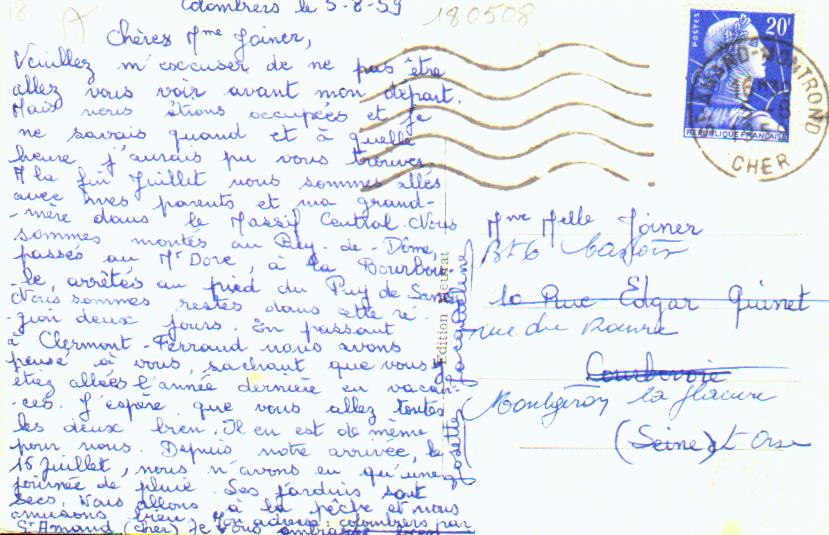 Colombiers le 5-8-59
180508
18
Chères Mme Joiner,
Veuillez m'excuser de ne pas être
allez vous voir avant mon départ.
Mais nous étions occupées et je
ne savais quand et à quelle
heure j'aurais pu vous trouver.
A la fin Juillet nous sommes allés
avec mes parents et ma grand-
-mère dans le Massif Central. Nous
sommes montés au Puy-de-Dôme,
passés au Mt Dore, à la Bourbou-
le, arrêtés au pied du Puy de Sancy
Nous sommes restés dans cette ré-
gion deux jours. En passant
à Clermont-Ferrand nous avons
pensé à vous, sachant que vous y
étiez allées l'année dernière en vacan-
-ces. J'espère que vous allez toutes
les deux bien. Il en est de même
pour nous. Depuis notre arrivée, le
15 Juillet, nous n'avons eu qu'une
journée de pluie. Ses jardins sont
secs. Nous allons à la pêche et nous
amusons bien. Mon adresse: colombiers par
St Amand (cher) Je vous embrasse bien
Josette Jacqueline
Edition
POSTES 20F
REPUBLIQUE FRANÇAISE
ST AMAND-MONTROND
CHER
Mme Melle Joiner
10 Rue Edgar Quinet
rue du
Courbevoie
Montgeron la
(Seine) et Oise